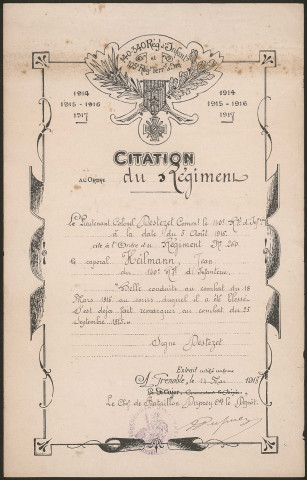 140-340 Rég. d'Infant.
et
1914
1915-1916
1917
1914
1915-1916
1917
CITATION
AU ORDRE du Régiment
Le Lieutenant Colonel Destezet Comant le 140e R.t d'Inf.
à la date du 5 Août 1916,
cite à l'Ordre du Régiment No 260
Le caporal Heilmann, Jean
du 140e R.t d'Infanterie.
"Belle conduite au combat du 18
Mars 1916 au cours duquel il a été blessé.
S'est déjà fait remarquer au combat du 25
Septembre 1915."
Signé Destezet
Extrait certifié conforme
A Grenoble, le 14 Mai 1918
Le Chef de Bataillon Duprey Ct le Dépôt.